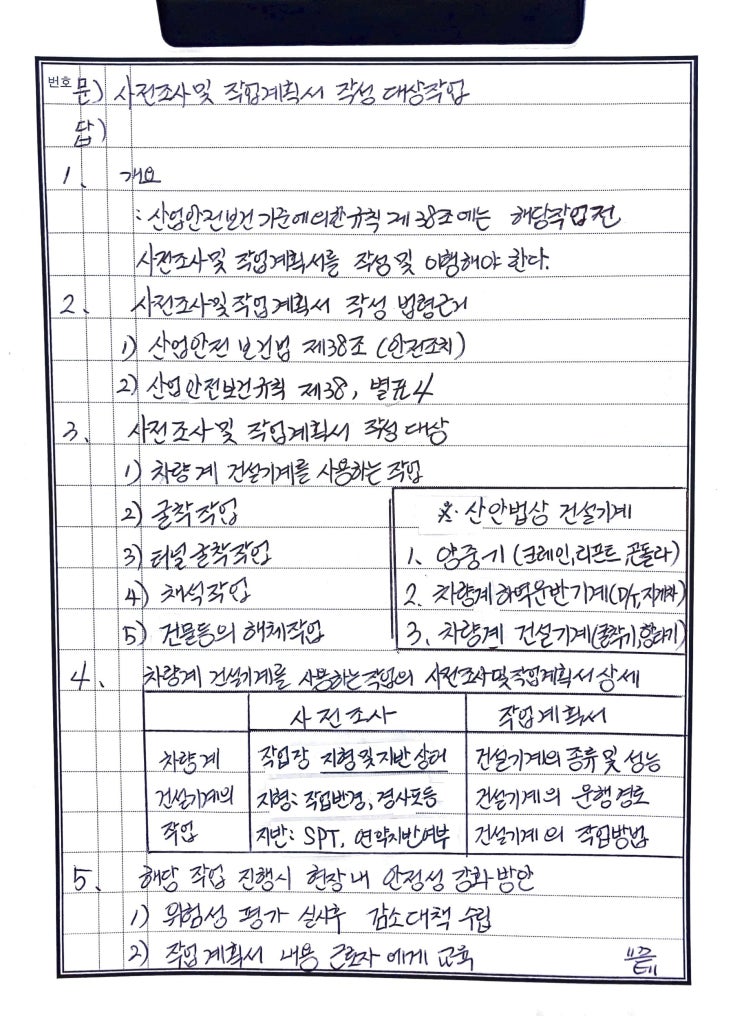 번호 문) 사전조사 및 작업계획서 작성 대상작업
답)
1. 개요
: 산업안전보건 기준에의한규칙 제38조에는 해당작업전
사전조사 및 작업계획서를 작성 및 이행해야 한다.
2. 사전조사 및 작업계획서 작성 법령근거
1) 산업안전보건법 제38조 (안전조치)
2) 산업안전보건규칙 제38, 별표4
3. 사전조사 및 작업계획서 작성 대상
1) 차량계 건설기계를 사용하는 작업
2) 굴착작업
3) 터널굴착작업
4) 채석작업
5) 건물등의 해체작업
※. 산안법상 건설기계
1. 양중기 (크레인, 리프트, 곤돌라)
2. 차량계하역운반기계(D/T, 지게차)
3. 차량계 건설기계(굴착기, 항타기)
4. 차량계 건설기계를 사용하는작업의 사전조사 및 작업계획서 상세
사전조사 작업계획서
차량계 작업장 지형 및 지반상태 건설기계의 종류 및 성능
건설기계의 지형: 작업반경, 경사도등 건설기계의 운행경로
작업 지반: SPT, 연약지반여부 건설기계의 작업방법
5. 해당 작업 진행시 현장내 안정성 강화방안
1) 위험성 평가 실시후 감소대책 수립
2) 작업계획서 내용 근로자에게 교육 "끝"